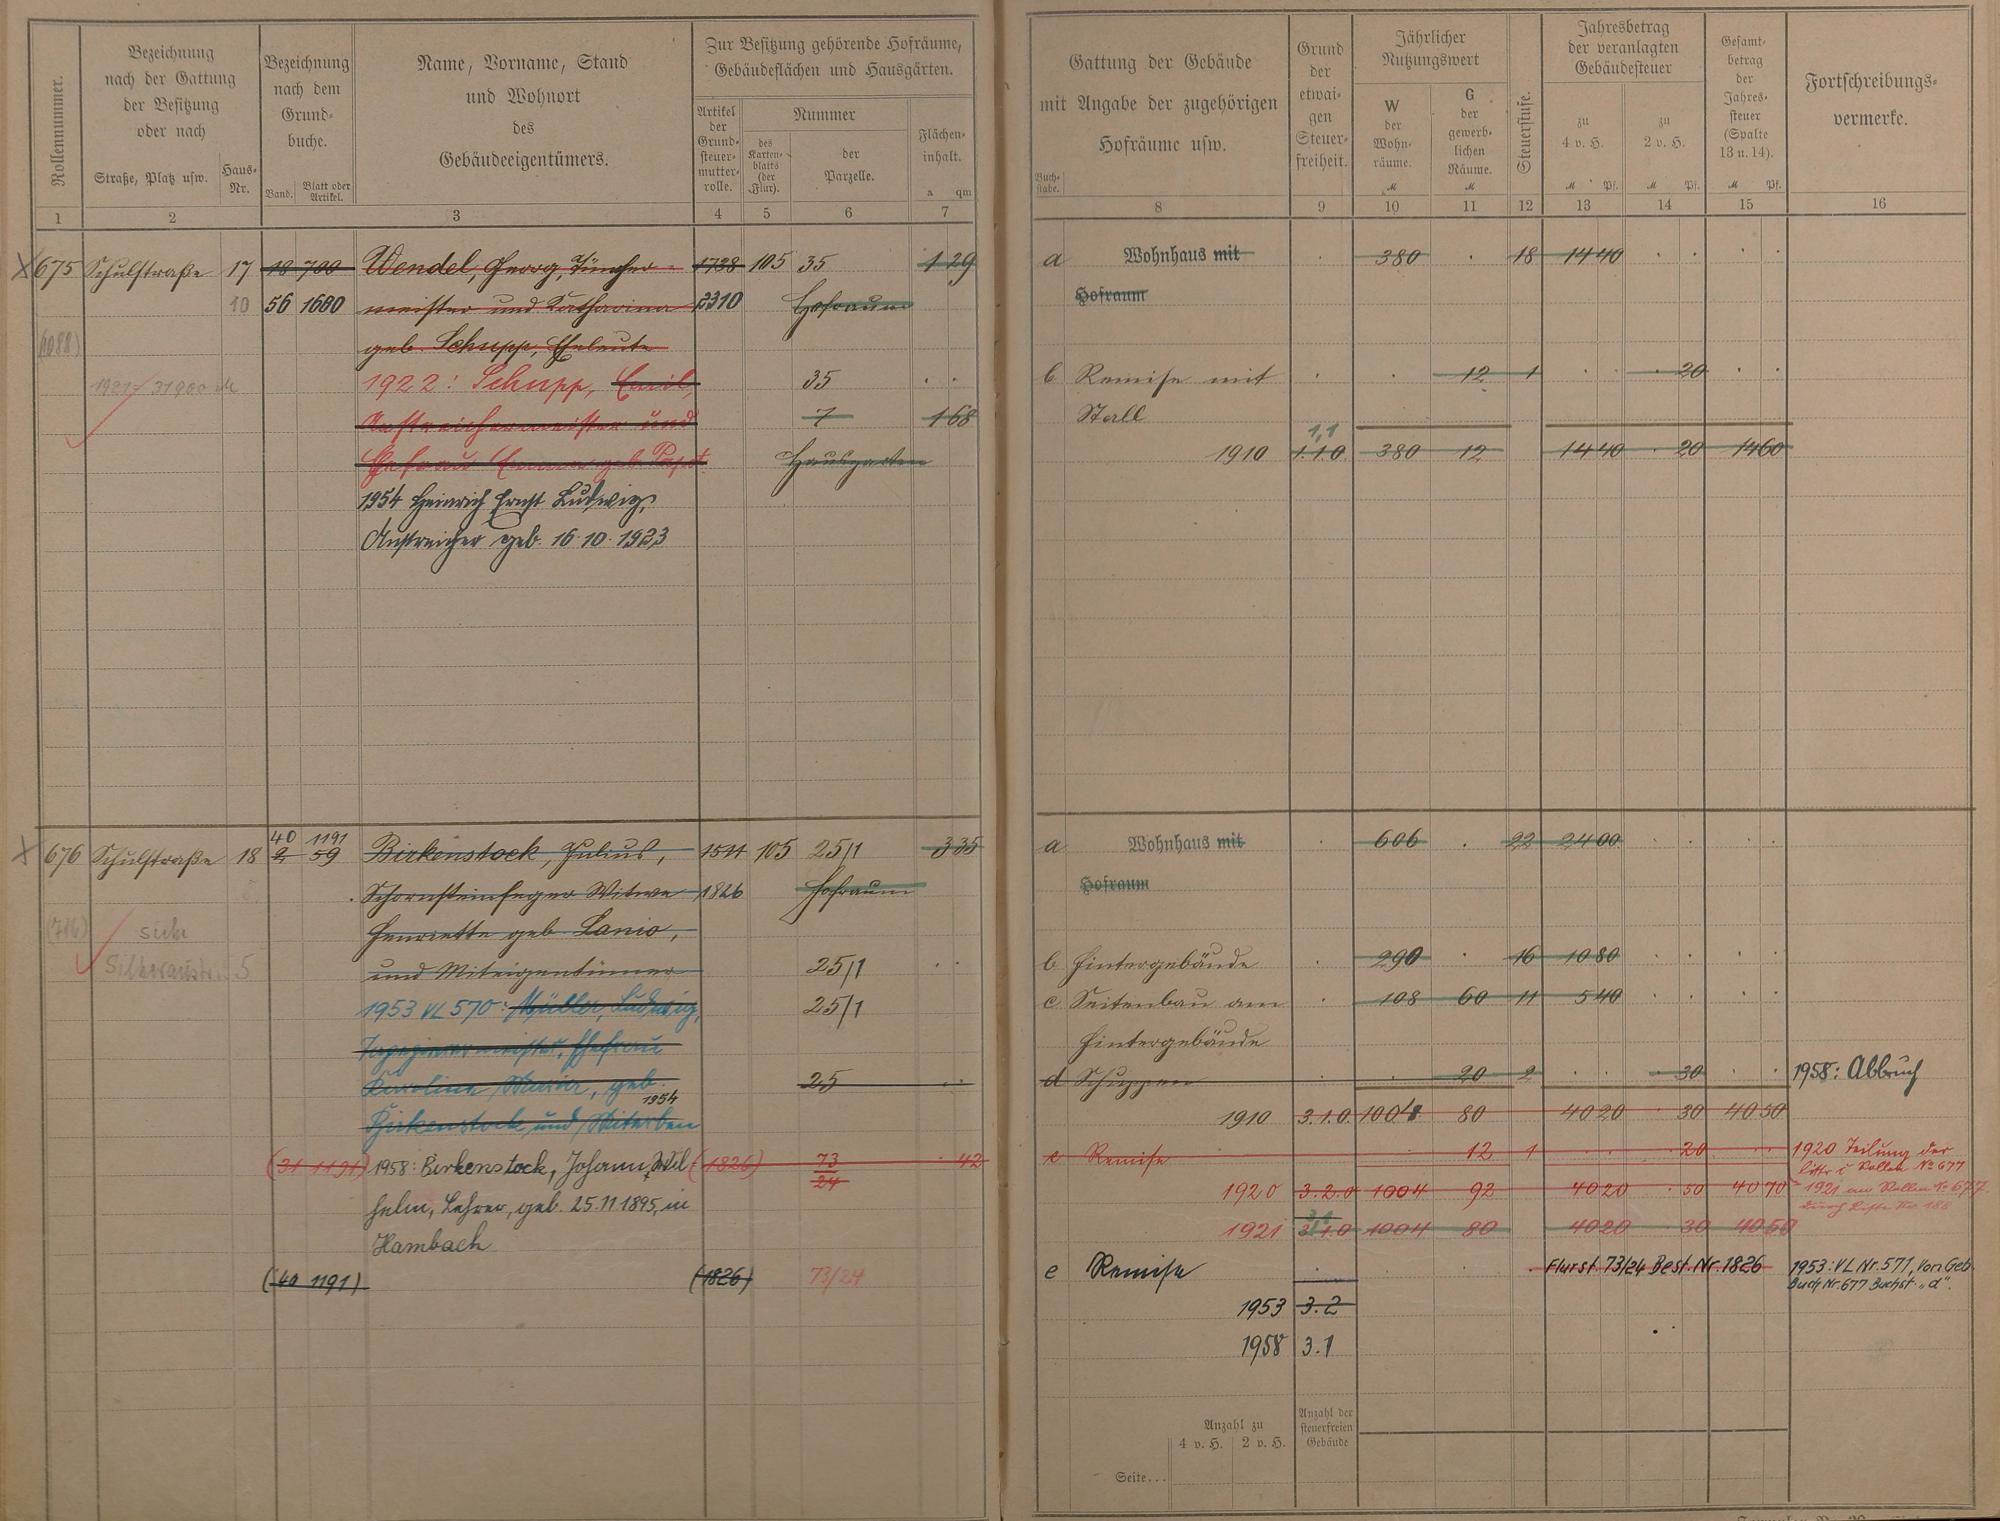 Rollennummer.
Bezeichnung
nach der Gattung
der Besitzung
oder nach
Straße, Platz usw.
Haus-
Nr.
Bezeichnung
nach dem
Grund-
buche.
Band.
Blatt oder
Artikel.
Name, Vorname, Stand
und Wohnort
des
Gebäudeeigentümers.
Zur Besitzung gehörende Hofräume,
Gebäudeflächen und Hausgärten.
Artikel
der
Grund-
steuer-
mutter-
rolle.
Nummer
des
Karten-
blatts
(der
Flur).
der
Parzelle.
Flächen-
inhalt.
a qm
1 2 3 4 5 6 7
675 Schulstraße 17 18 700 Wendel, Georg, Tüncher- 1738 105 35 1 29
10 56 1680 meister und Katharina 2310 Hofraum
(1088) geb. Schupp, Eheleute
1921: 31900 M 1922: Schupp, Emil, 35 . .
Anstreichermeister und 7 1 68
Ehefrau Emma geb. Hausgarten
1954 Heinrich Ernst Ludwig,
Anstreicher geb. 16.10.1923
40 1191
676 Schulstraße 18 2 59 Birkenstock, Julius, 1511 105 25/1 3 35
Schornsteinfeger Witwe 1826 Hofraum
(716) siehe Henriette geb. Lanio,
5 und Miteigentümer 25/1 . .
1953 VL 570: Müller, Ludwig, 25/1
Tapezierermeister, Ehefrau
Karoline Maria, geb. 25 . .
1954
Birkenstock und Miterben
(31 1191) 1958: Birkenstock, Johann Wil- (1826) 73/24 . 42
helm, Lehrer, geb. 25.11.1895, in
Hambach
(40 1191) (1826) 73/24
Gattung der Gebäude
mit Angabe der zugehörigen
Hofräume usw.
Buch-
stabe.
Grund
der
etwai-
gen
Steuer-
freiheit.
Jährlicher
Nutzungswert
W
der
Wohn-
räume.
M
G
der
gewerb-
lichen
Räume.
M
Steuerstufe.
Jahresbetrag
der veranlagten
Gebäudesteuer
zu
4 v. H.
M Pf.
zu
2 v. H.
M Pf.
Gesamt-
betrag
der
Jahres-
steuer
(Spalte
13 u. 14).
M Pf.
Fortschreibungs-
vermerke.
8 9 10 11 12 13 14 15 16
a Wohnhaus mit . 380 . 18 14 40 . . . .
Hofraum
b Remise mit . . 12 1 . . . 20 . .
Stall
1,1
1910 1.1.0. 380 12 14 40 . 20 14 60
a Wohnhaus mit . 606 . 22 24 00 . . . .
Hofraum
b Hintergebäude . 290 . 16 10 80 . . . .
c Seitenbau am . 108 60 11 5 40 . . . .
Hintergebäude
d Schuppen . . 20 2 . . . 30 . . 1958: Abbruch
1910 3.1.0. 1004 80 40 20 . 30 40 50
e Remise . . 12 1 . . . 20 . . 1920 Teilung der
littr c Rollen No 677
1920 3.2.0 1004 92 40 20 . 50 40 70 1921 an Rollen No 677
3.1
1921 3.1.0 1004 80 40 20 . 30 40 50
e Remise . . . . Flurst. 73/24 Best. Nr. 1826 1953: VL Nr. 571, Von Geb.
Buch Nr. 677 Buchst. „d“.
1953 3.2
1958 3.1
Anzahl zu
4 v. H. 2 v. H.
Anzahl der
steuerfreien
Gebäude
Seite...